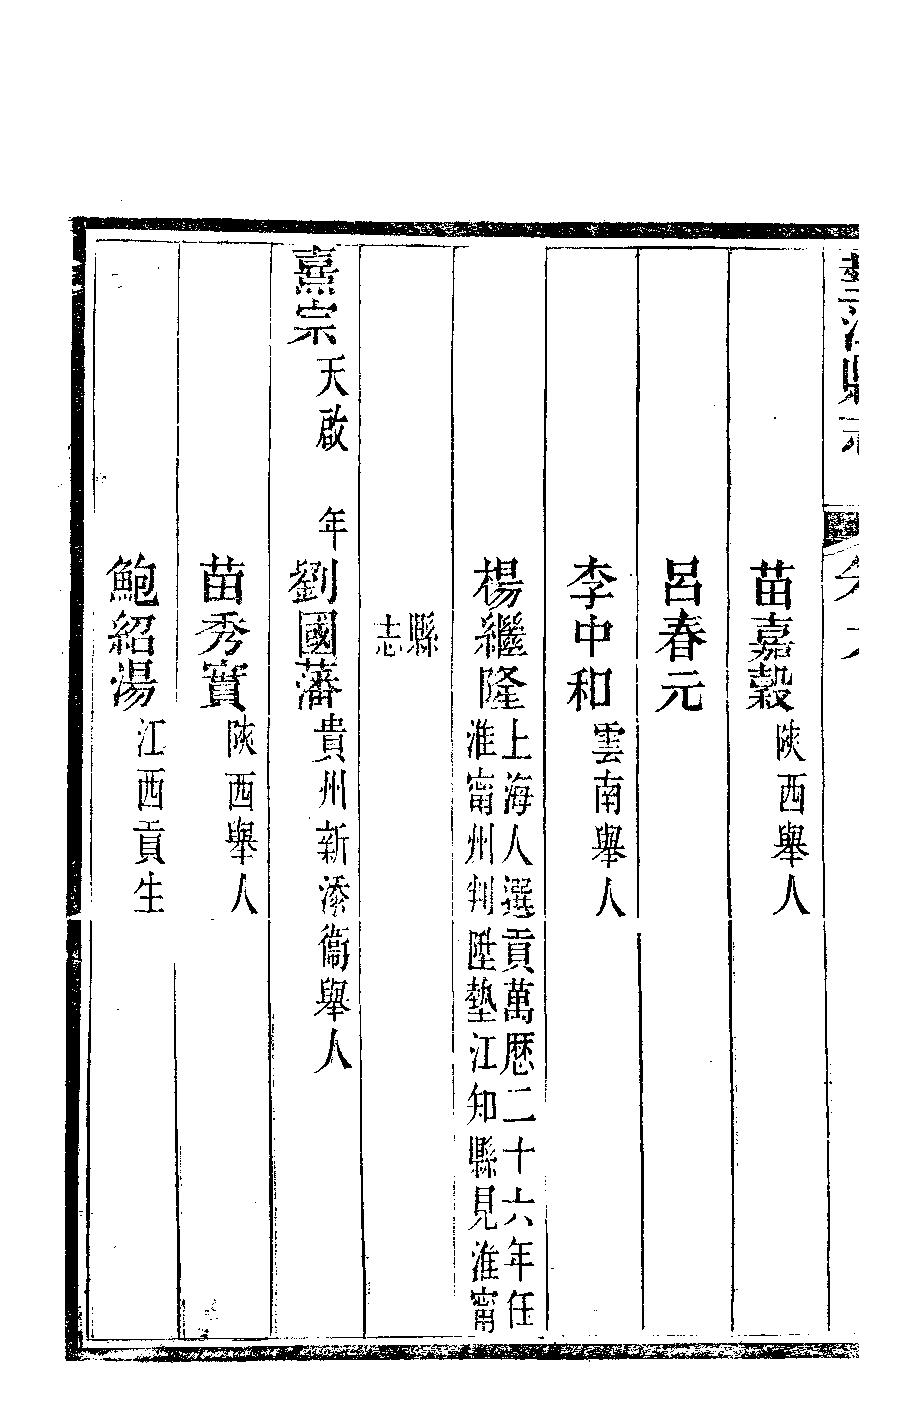 墊江縣志
卷
苗嘉穀陝西舉人
呂春元
李中和雲南舉人
楊繼隆上海人選貢萬厯二十六年任
淮甯州判陞墊江知縣見淮甯
縣
志
熹宗天啟 年劉國藩貴州新添衞舉人
苗秀實陝西舉人
鮑紹湯江西貢生